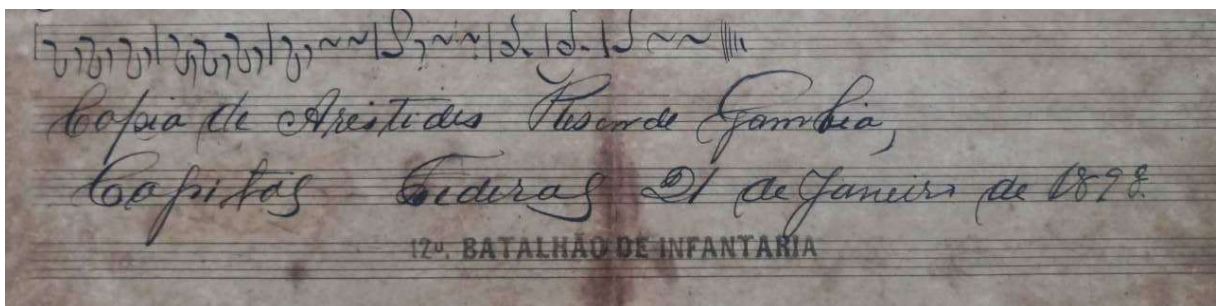 Copia de Aristides Resende Gambia,
Capital Federal 21 de Janeiro de 1898.
12º. BATALHÃO DE INFANTARIA